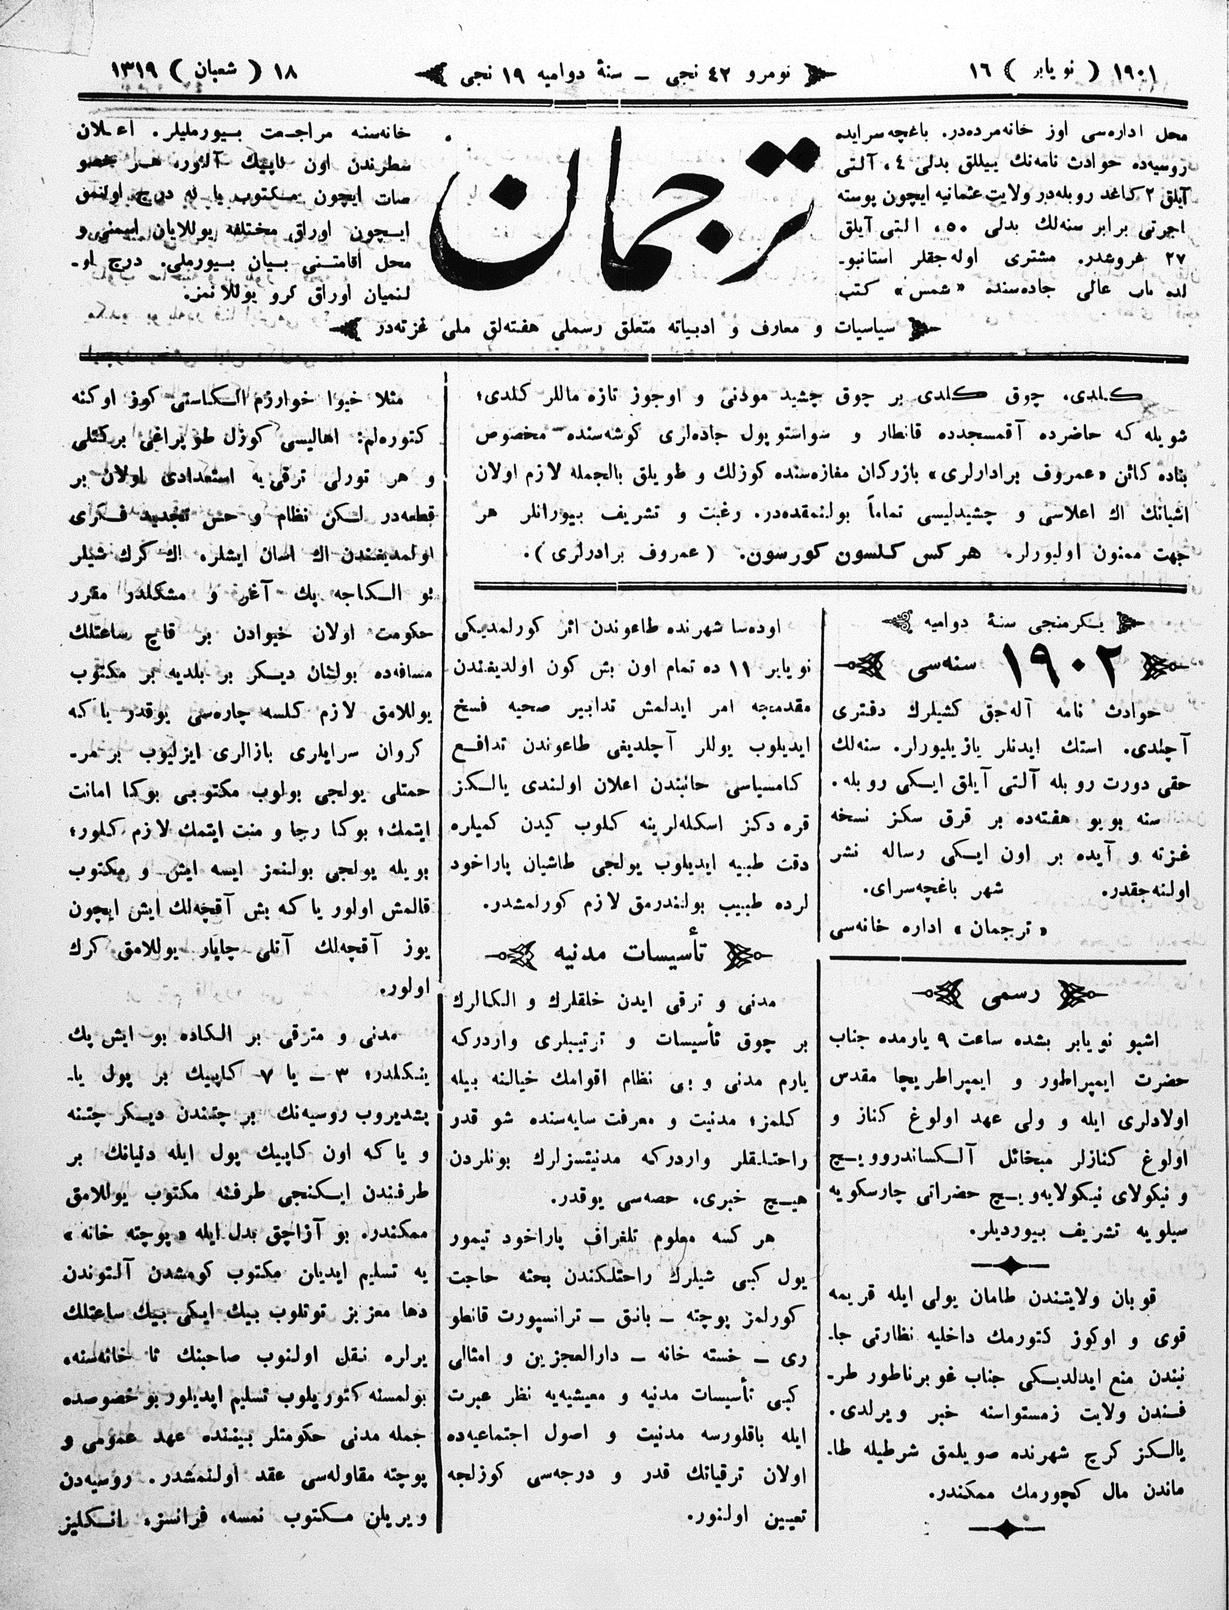 ١٩٠١ ( نویابر ) ١٦
نومرو ٤٢ نجی ــ سنۀ دوامیه ١٩ نجی
١٨ ( شعبان ) ١٣١٩
محل اداره‌سی اوز خانه‌مرده‌در. باغچه‌سرایده
روسیه‌ده حوادث نامه‌نك ییللق بدلی ٤، آلتی
آیلق ٢ کاغد روبله‌در ولایت عثمانیه ایچون پوسته
اجرتی برابر سنه‌لك بدلی ٥٠، التی آیلق
٢٧ غروشدر. مشتری اوله‌جقلر استانبو۔
لده باب عالی جاده‌سنده «شمس» کتب
ترجمان
خانه‌سنه مراجعت بیورملیلر. اعلان
سطرندن اون کاپیك آلنور. هر خصو
صات ایچون مکتوب یا له درج اولنمق
ایچون اوراق مختلفه یوللایان اسمنی و
محل اقامتنی بیان بیورملی. درج او۔
لنمیان اوراق کرو یوللانمز.
سیاسیات و معارف و ادبیاته متعلق رسملی هفته‌لق ملی غزته‌در
کلدی، چوق کلدی بر چوق چشید موذنی و اوجوز تازه ماللر کلدی؛
شویله که حاضرده آقمسجدده قانطار و سواستوپول جاده‌لری کوشه‌سنده مخصوص
بناده کائن «عمروف برادارلری» بازرکان مغازه‌سنده کوزلك و طویلق بالجمله لازم اولان
اشیانك اك اعلاسی و چشیدلیسی تماماً بولنمقده‌در. رغبت و تشریف بیورانلر هر
جهت ممنون اولیورلر. هر کس کلسون کورسون. ( عمروف برادرلری ).
یکرمنجی سنۀ دوامیه
١٩٠٢ سنه‌سی
حوادث نامه آله‌جق کشیلرك دفتری
آچلدی. استك ایدنلر یازیلیورلر. سنه‌لك
حقی دورت روبله آلتی آیلق ایکی روبله.
سنه بویو هفته‌ده بر قرق سکز نسخه
غزته و آیده بر اون ایکی رساله نشر
اولنه‌جقدر. شهر باغچه‌سرای.
« ترجمان » اداره خانه‌سی
رسمی
اشبو نویابر بشده ساعت ٩ یارمده جناب
حضرت ایمپراطور و ایمپراطریچا مقدس
اولادلری ایله و ولی عهد اولوغ کناز و
اولوغ کنازلر میخائل آلکساندروویچ
و نیکولای نیکولایه‌ویچ حضراتی چارسکویه
سیلویه تشریف بیوردیلر.
قوبان ولایتندن طامان یولی ایله قریمه
قوی و اوکوز کتورمك داخلیه نظارتی جا۔
نبندن منع ایدلدیکی جناب غوبرناطور طر۔
فندن ولایت زمستواسنه خبر ویرلدی.
یالکز کرچ شهرنده صویلمق شرطیله طا۔
ماندن مال کچورمك ممکندر.
اوده‌سا شهرنده طاعوندن اثر کورلمدیکی
نویابر ١١ ده تمام اون بش کون اولدیغندن
مقدمجه امر ایدلمش تدابیر صحیه فسخ
ایدیلوب یوللر آچلدیغی طاعوندن تدافع
کامسیاسی جانبندن اعلان اولندی یالکز
قره دکز اسکله‌لرینه کلوب کیدن کمیلره
دقت طبیه ایدیلوب یولجی طاشیان پاراخود
لرده طبیب بولندرمق لازم کورلمشدر.
تأسیسات مدنیه
مدنی و ترقی ایدن خلقلرك و الکالرك
بر چوق تأسیسات و ترتیبلری واردرکه
یارم مدنی و بی نظام اقوامك خیالنه بیله
کلمز؛ مدنیت و معرفت سایه‌سنده شو قدر
راحتلقلر واردرکه مدنیتسزلرك بونلردن
هیچ خبری، حصه‌سی یوقدر.
هر کسه معلوم تلغراف پاراخود تیمور
یول کبی شیلرك راحتلکندن بحثه حاجت
کورلمز پوچته ــ بانق ــ ترانسپورت قانطو
ری ــ خسته خانه ــ دارالعجزین و امثالی
کبی تأسیسات مدنیه و معیشیه‌یه نظر عبرت
ایله باقلورسه مدنیت و اصول اجتماعیه‌ده
اولان ترقیاتك قدر و درجه‌سی کوزلجه
تعیین اولنور.
مثلا خیوا خوارزم الکاسنی کوز اوکنه
کتوره‌لم: اهالیسی کوزل طوپراغی برکتلی
و هر تورلی ترقی‌یه استعدادی اولان بر
قطعه‌در لکن نظام و حس تجدید فکری
اولمدیغندن اك اسان ایشلر، اك کرك شیلر
بو الکاجه پك آغر و مشکلدر مقرر
حکومت اولان خیوادن بر قاچ ساعتلك
مسافه‌ده بولنان دیکر بر بلدیه بر مکتوب
یوللامق لازم کلسه چاره‌سی یوقدر یا که
کروان سرایلری بازالری ایزلیوب بر مر۔
حمتلی یولجی بولوب مکتوبی بوکا امانت
ایتمك؛ بوکا رجا و منت ایتمك لازم کلور؛
بویله یولجی بولنمز ایسه ایش و مکتوب
قالمش اولور یا که بش آقچه‌لك ایش ایچون
یوز آقچه‌لك آتلی چاپار یوللامق کرك
اولور.
مدنی و مترقی بر الکاده بو ایش پك
ینکلدر؛ ٣ ــ یا ٧ کاپیك بر پول یا۔
پشدیروب روسیه‌نك بر چتندن دیکر چتنه
و یا که اون کاپیك پول ایله دنیانك بر
طرفندن ایکنجی طرفنه مکتوب یوللامق
ممکندر. بو آزاچق بدل ایله «پوچته خانه»
یه تسلیم ایدیان مکتوب کومشدن آلتوندن
دها معزیز توتلوب بیك ایکی بیك ساعتلك
یرلره نقل اولنوب صاحبنك تا خانه‌سنه،
بولمسنه کتوریلوب تسلیم ایدیلور بو خصوصده
جمله مدنی حکومتلر بیننده عهد عمومی و
پوچته مقاوله‌سی عقد اولنمشدر. روسیه‌دن
ویریلن مکتوب نمسه، فرانسز، انکلیز